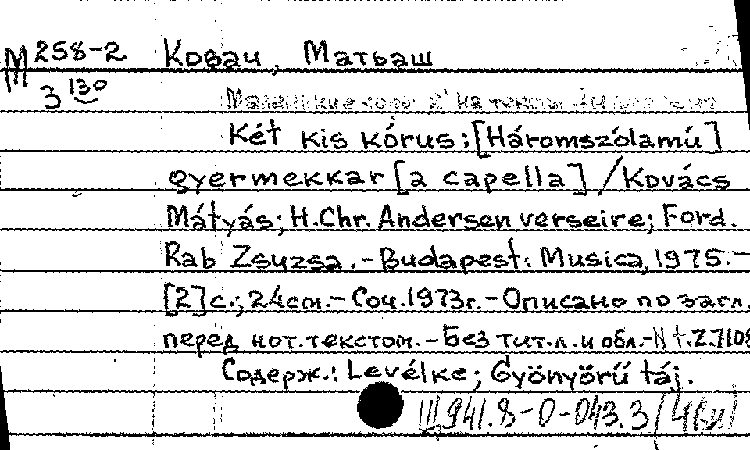 М 258-2 Ковач, Матьаш
3 130
Маленькие хоры 2 на тексты
Két kis kórus: [Háromszólamú]
gyermekkar [a capella] / Kovács
Mátyás; H.Chr. Andersen verseire; Ford.
Rab Zsuzsa. - Budapest: Musica, 1975. -
[2] с.; 24см. - Соч. 1973г. - Описано по загл.
перед нот. текстом. - Без тит.л. и обл. - N t. Z.7108
Содерж.: Levélke; Gyönyörű táj.
Ш941.8-0-043.3